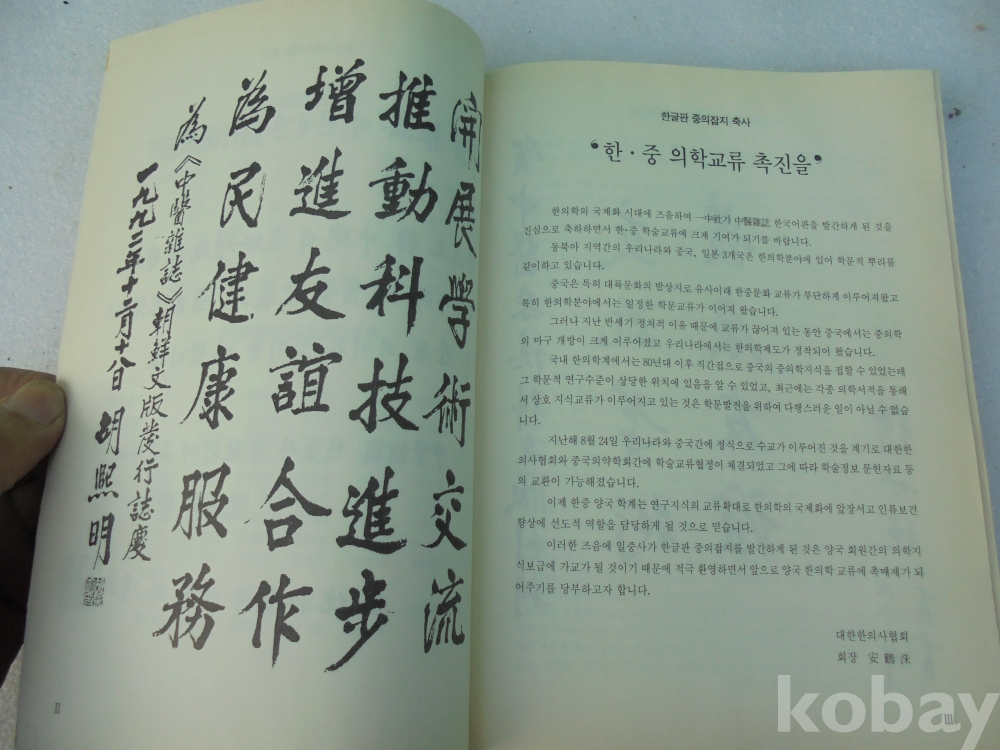 開展學術交流
推動科技進步
增進友誼合作
為民健康服務
為《中醫雜誌》朝鮮文版發行誌慶
一九九二年十二月十八日 胡熙明
II
한글판 중의잡지 축사
❛한·중 의학교류 촉진을❜
한의학의 국제화 시대에 즈음하여 一中社가 中醫雜誌 한국어판을 발간하게 된 것을
진심으로 축하하면서 한·중 학술교류에 크게 기여가 되기를 바랍니다.
동북아 지역간의 우리나라와 중국, 일본 3개국은 한의학분야에 있어 학문적 뿌리를
같이하고 있습니다.
중국은 특히 대륙문화의 발상지로 유사이래 한중문화 교류가 부단하게 이루어져왔고
특히 한의학분야에서는 일정한 학문교류가 이어져 왔습니다.
그러나 지난 반세기 정치적 이유 때문에 교류가 끊어져 있는 동안 중국에서는 중의학
의 마구 개방이 크게 이루어졌고 우리나라에서는 한의학제도가 정착되어 왔습니다.
국내 한의학계에서는 80년대 이후 직간접으로 중국의 중의학지식을 접할 수 있었는데
그 학문적 연구수준이 상당한 위치에 있음을 알 수 있었고, 최근에는 각종 의학서적을 통해
서 상호 지식교류가 이루어지고 있는 것은 학문발전을 위하여 다행스러운 일이 아닐 수 없습
니다.
지난해 8월 24일 우리나라와 중국간에 정식으로 수교가 이루어진 것을 계기로 대한한
의사협회와 중국의약학회간에 학술교류협정이 체결되었고 그에 따라 학술정보 문헌자료 등
의 교환이 가능해졌습니다.
이제 한중 양국 학계는 연구지식의 교류확대로 한의학의 국제화에 앞장서고 인류보건
향상에 선도적 역할을 담당하게 될 것으로 믿습니다.
이러한 즈음에 일중사가 한글판 중의잡지를 발간하게 된 것은 양국 회원간의 의학지
식보급에 가교가 될 것이기 때문에 적극 환영하면서 앞으로 양국 한의학 교류에 촉매제가 되
어주기를 당부하고자 합니다.
대한한의사협회
회장 安鶴洙
III
kobay